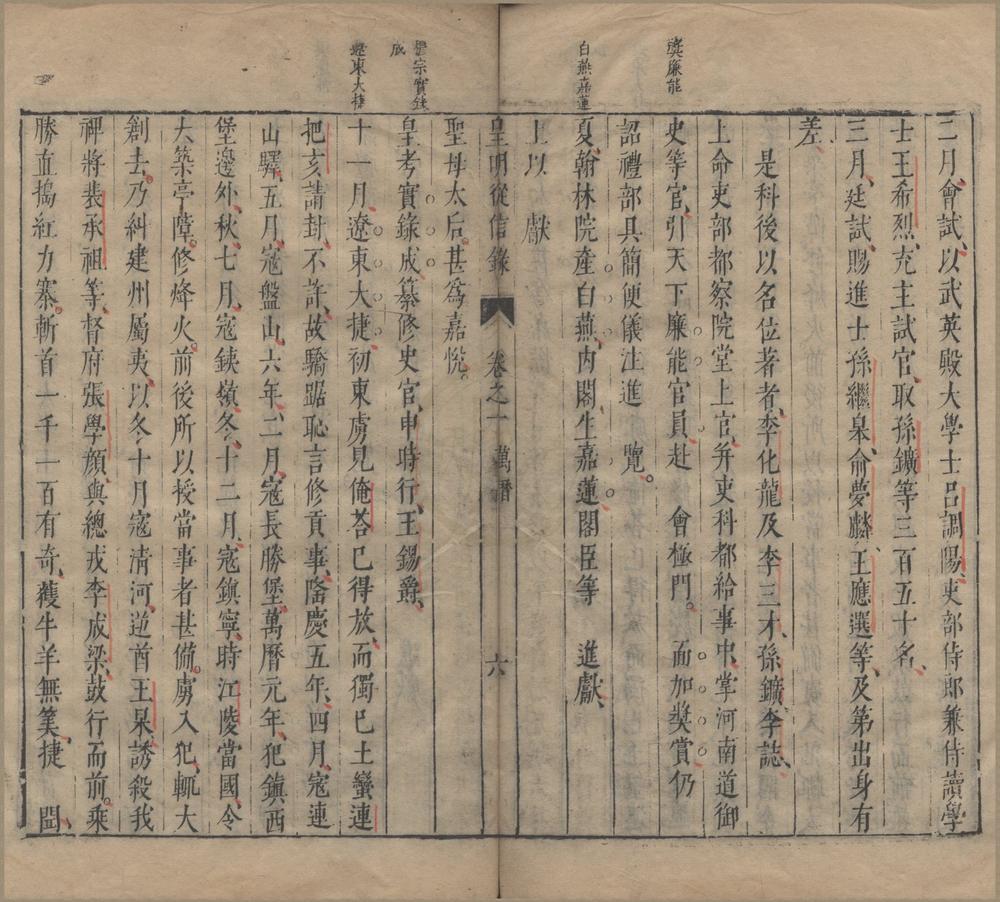 獎廉能
白燕嘉蓮
二月、會試、以武英殿大學士呂調陽、吏部侍郎兼侍讀學
士王希烈、充主試官、取孫鑛等三百五十名、
三月、廷試、賜進士孫繼皐、俞夢麟、王應選等、及第出身有
差、
是科後以名位著者、李化龍及李三才、孫鑛、李誌、
上命吏部都察院堂上官、并吏科都給事中、掌河南道御
史等官、引天下廉能官員、赴 會極門。面加奬賞、仍
詔禮部具簡便儀注進 覽。
夏、翰林院產白燕、內閣生嘉蓮、閣臣等 進獻、
上以 獻
皇明從信錄 卷之一 萬曆 六
穆宗實錄
成
遼東大捷
聖母太后。甚爲嘉悅。
皇考實錄成、纂修史官、申時行、王錫爵、
十一月、遼東大捷、初東虜見俺荅已得放、而獨已土蠻連
把亥請封、不許、故驕踞恥言修貢事、隆慶五年、四月、寇連
山驛、五月、寇盤山、六年、二月、寇長勝堡、萬曆元年、犯鎮西
堡邊外、秋、七月、寇鐵嶺、冬、十二月、寇鎮寧、時江陵當國、令
大築亭障、修烽火、前後所以授當事者甚備。虜入犯、輒大
創去。乃糾建州屬夷、以冬十月寇清河、逆酋王杲、誘殺我
裨將裴承祖等、督府張學顏、與總戎李成梁、鼓行而前。乘
勝直搗紅力寨。斬首一千一百有奇、獲牛羊無筭、捷 聞、